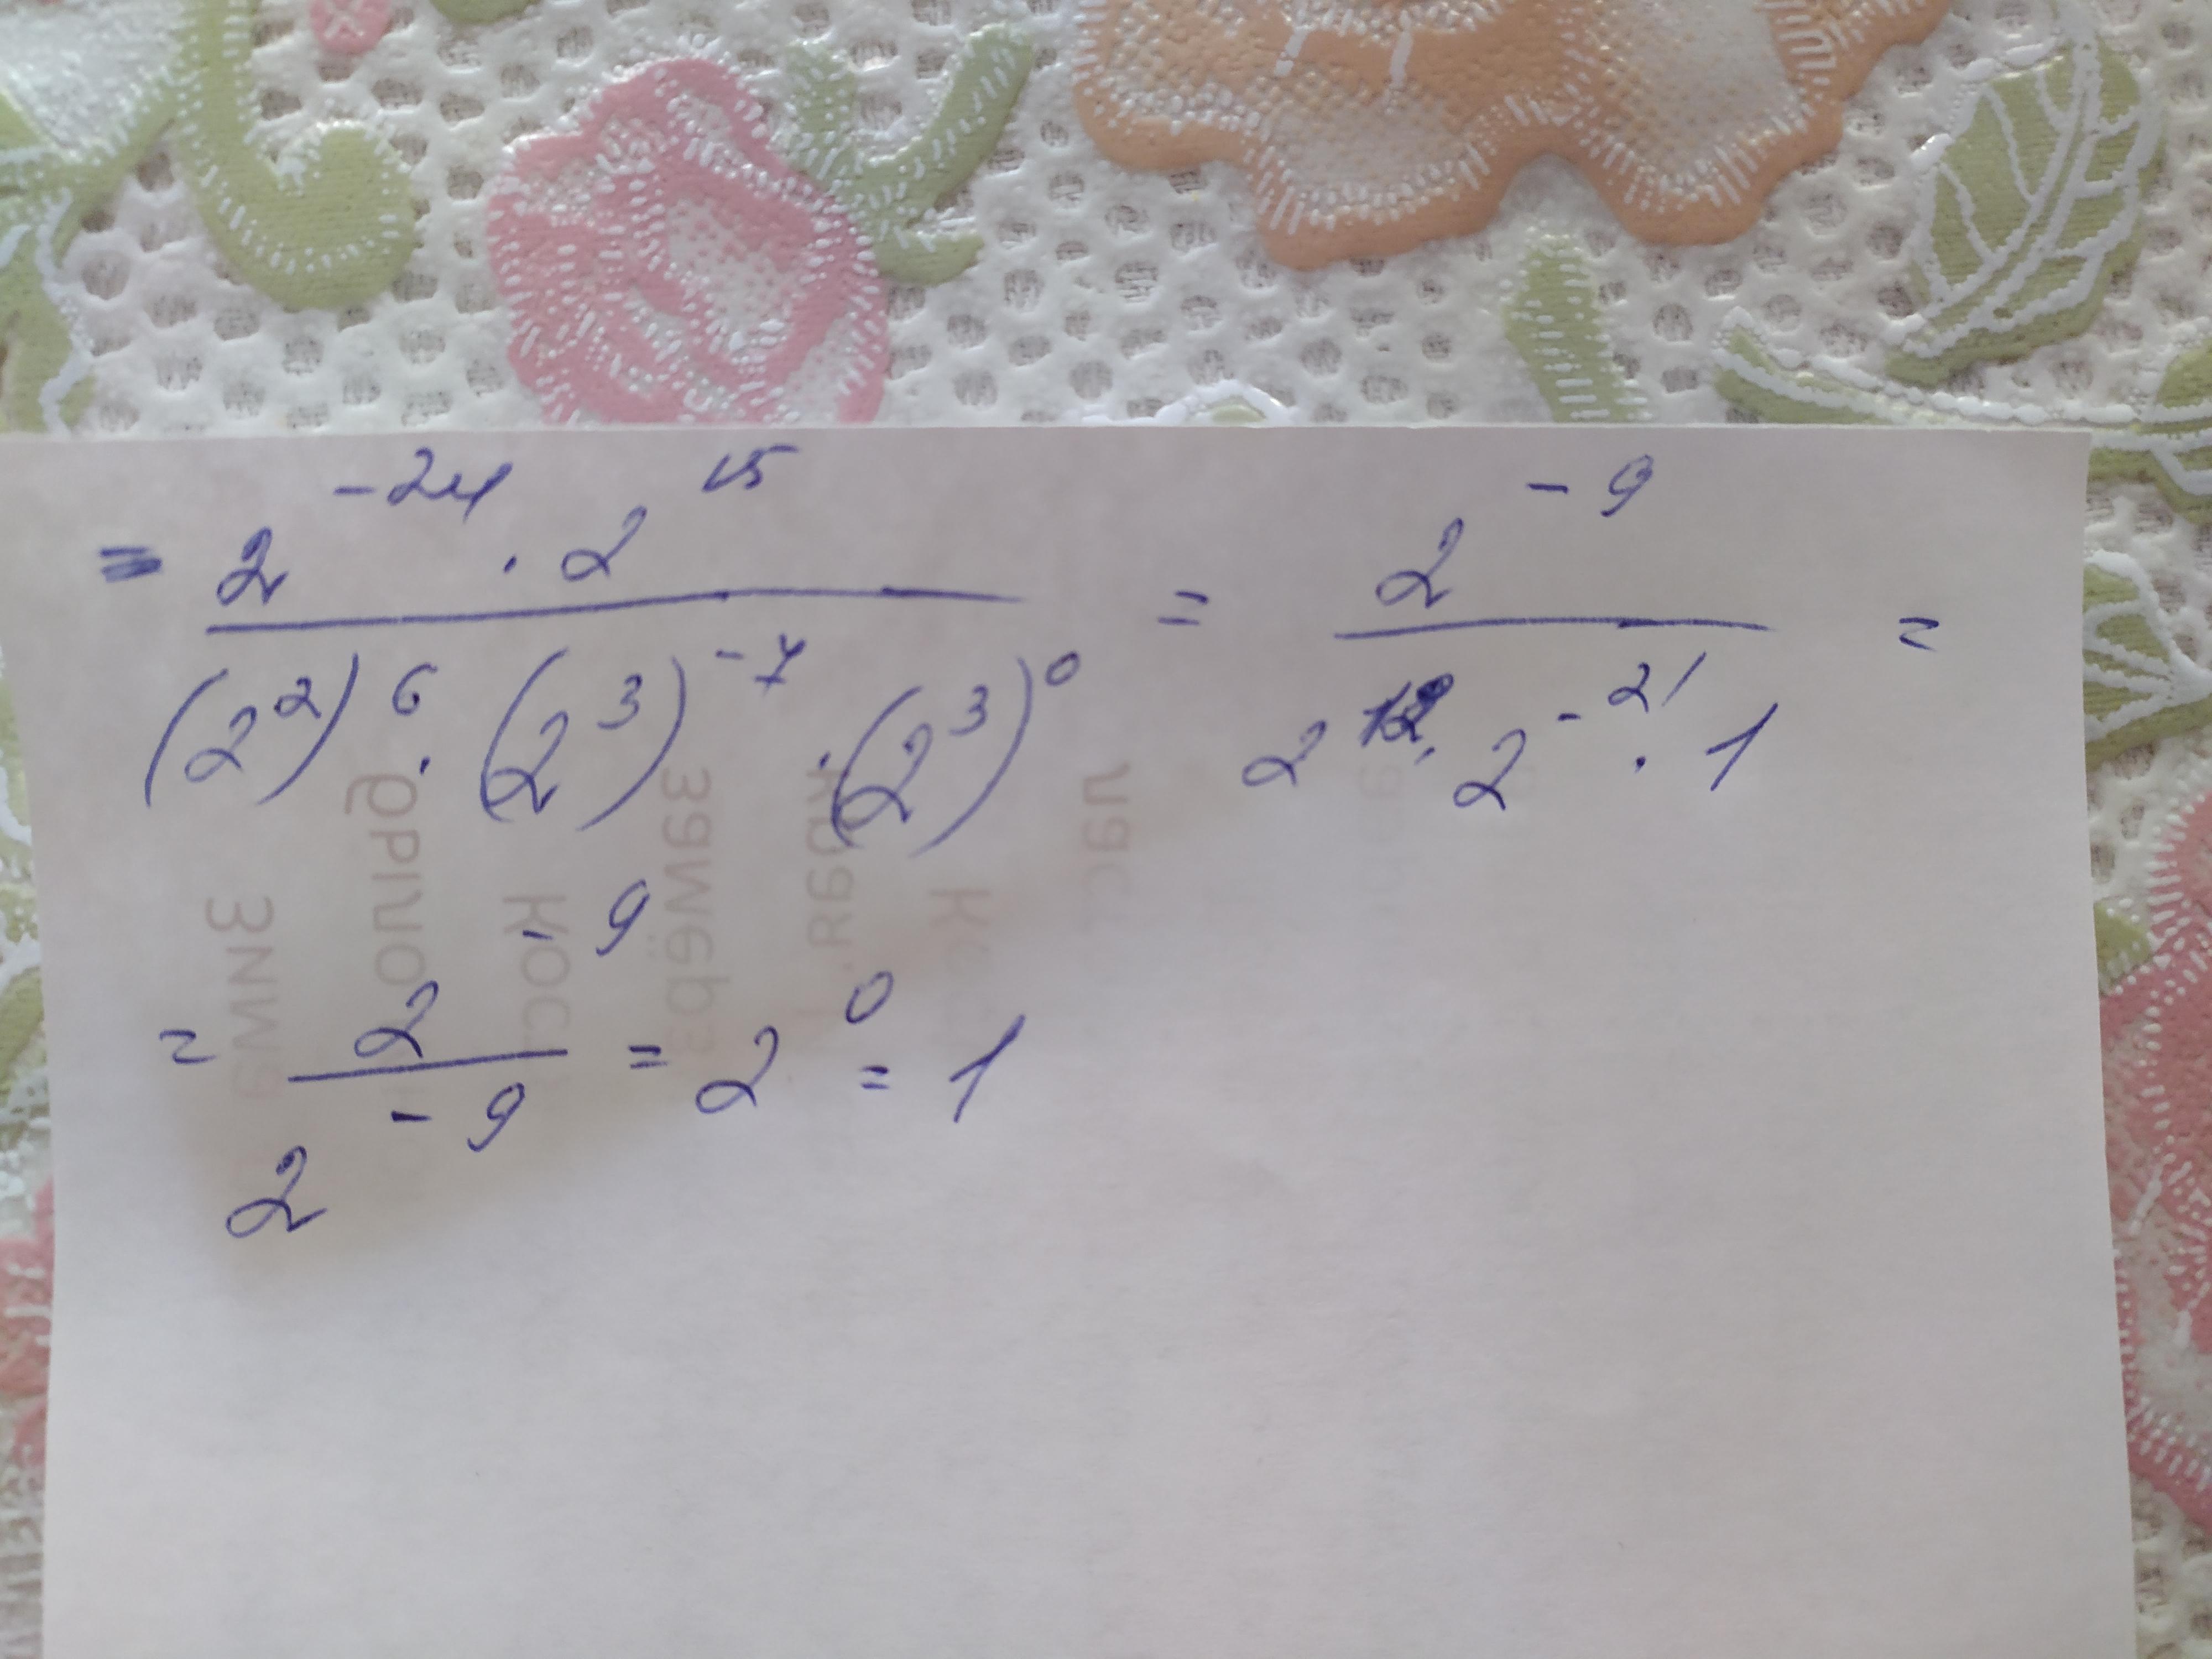 = 2^-24 · 2^15 / (2^2)^6 · (2^3)^-7 · (2^3)^0 = 2^-9 / 2^12 · 2^-21 · 1 =
= 2^-9 / 2^-9 = 2^0 = 1